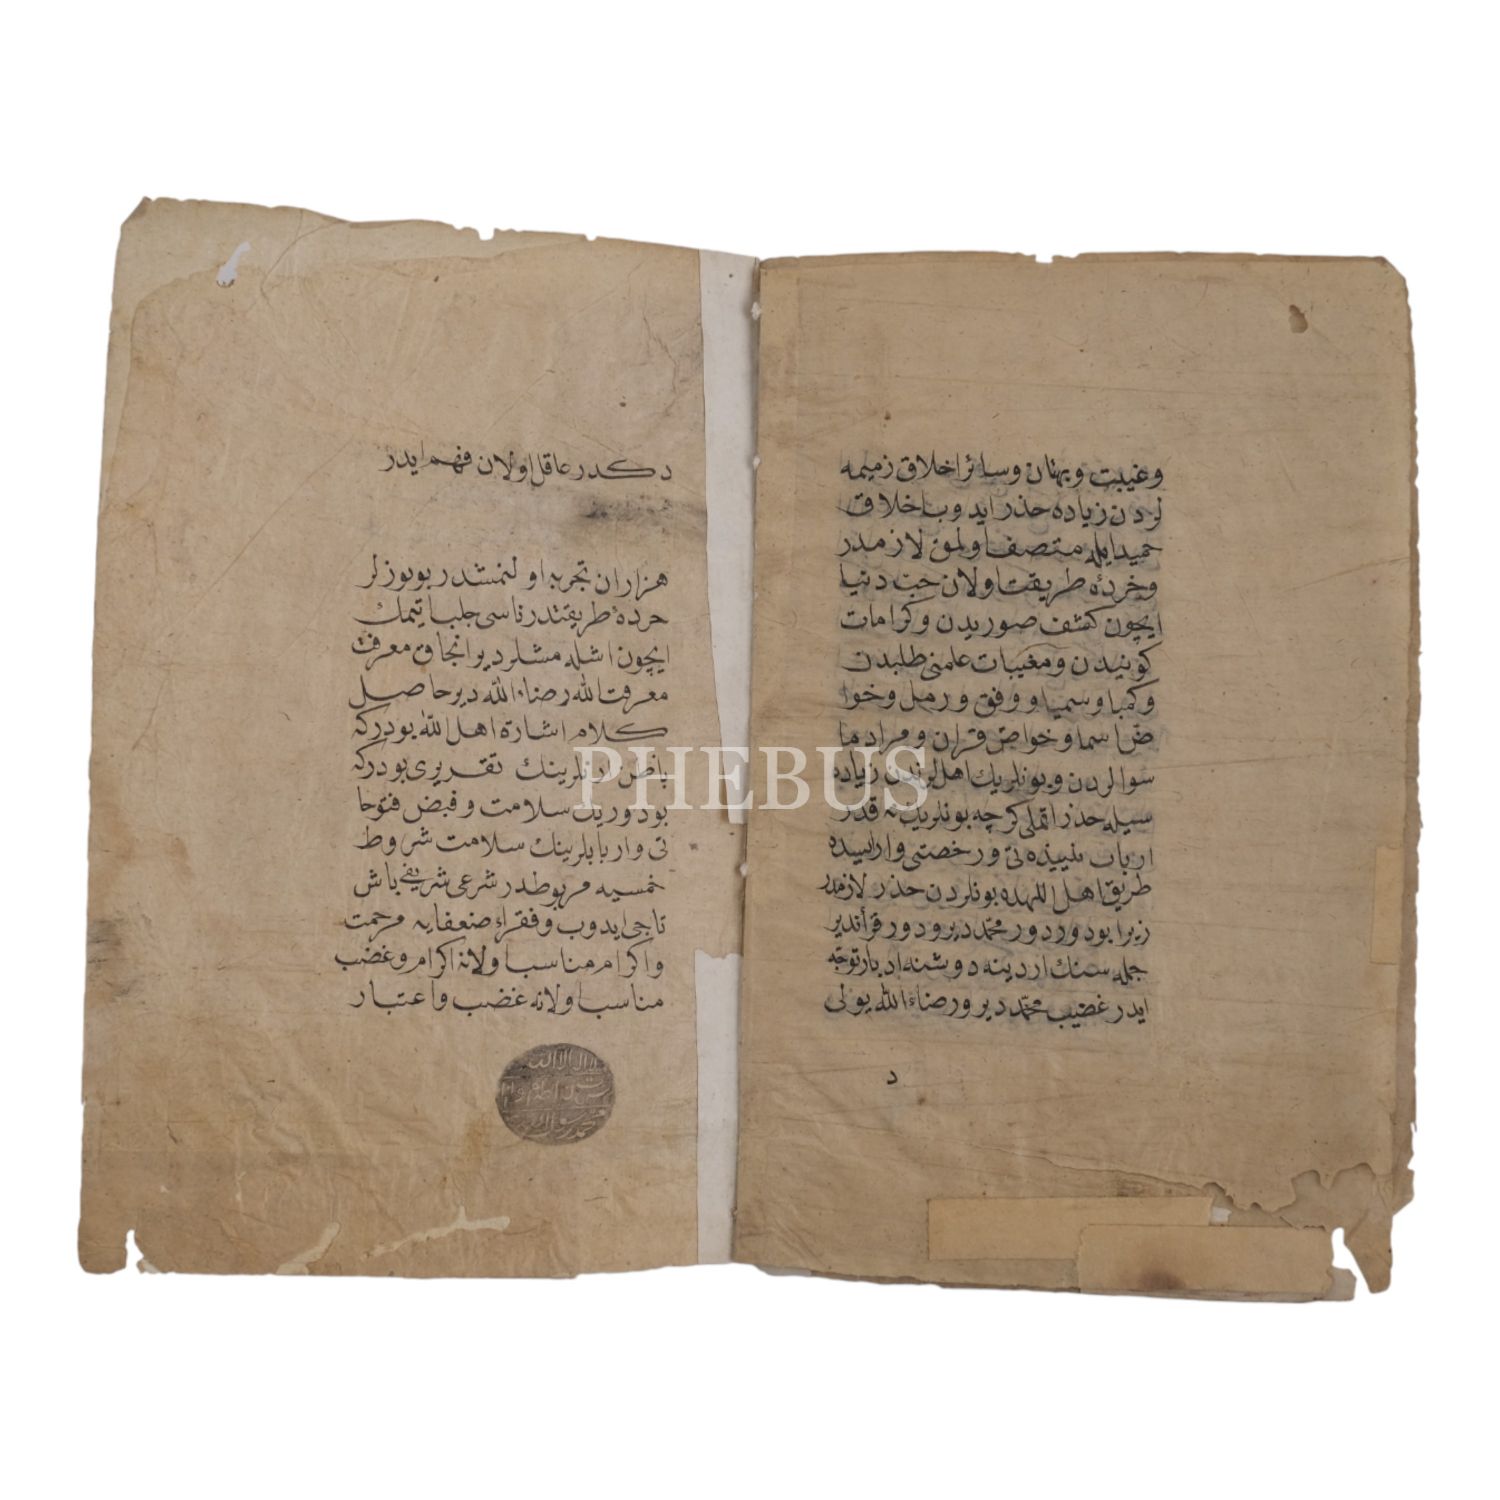 وغيبت وبهتان وسائر اخلاق زميمه
لردن زياده حذر ايدوب اخلاق
حميدايله متصف اولمق لازمدر
وخردهٔ طريقت اولان حب دنيا
ايچون كشف صوريدن وكرامات
كونيدن ومغيبات علمنى طلبدن
وكميا وسميا و وفق ورمل وخوا
ض اسما وخواص قران ومراد ما
سوالردن وبونلريك اهللرندن زياده
سيله حذر اتملى كرچه بونلريك نه قدر
ارباب ورخصتى واراسيده
طريق اهل اللهده بونلردن حذر لازمدر
زيرا بودوردور محمد ديرودور قرأندير
جمله سنك ارد ينه دوشنه ادبار توجه
ايدر غضب محمد ديرورضاءالله يولى
د
دكدر عاقل اولان فهم ايدر
هزاران تجربه اولنمشدر بوبوزلر
خردهٔ طريقتدر ناسى جلب ايتمك
ايچون اشله مشلردير انجاق معرفت
معرفت الله رضاءالله دير حاصل
كلام اشارة اهل الله بودركه
تقريرى بودركه
بودوريك سلامت وفيض فتوحا
تى واربابلرينك سلامت شروط
خمسيه مربوطدر شرعى شريفى باش
تاجى ايدوب وفقراء ضعفايه مرحمت
واكرام مناسب اولانه اكرام وغضب
مناسب اولانه غضب واعتبار
PHEBUS